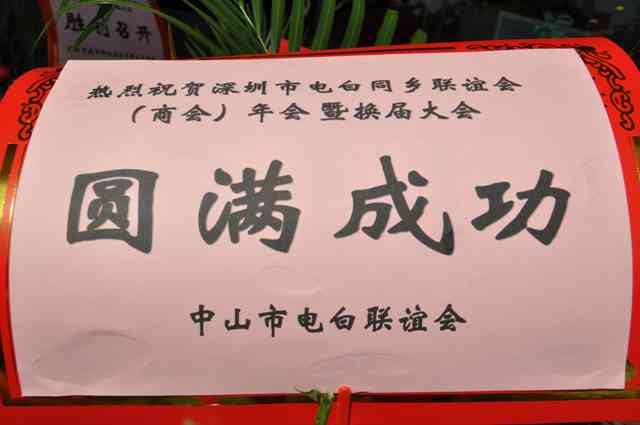 胜利召开
热烈祝贺深圳市电白同乡联谊会
（商会）年会暨换届大会
圆满成功
中山市电白联谊会